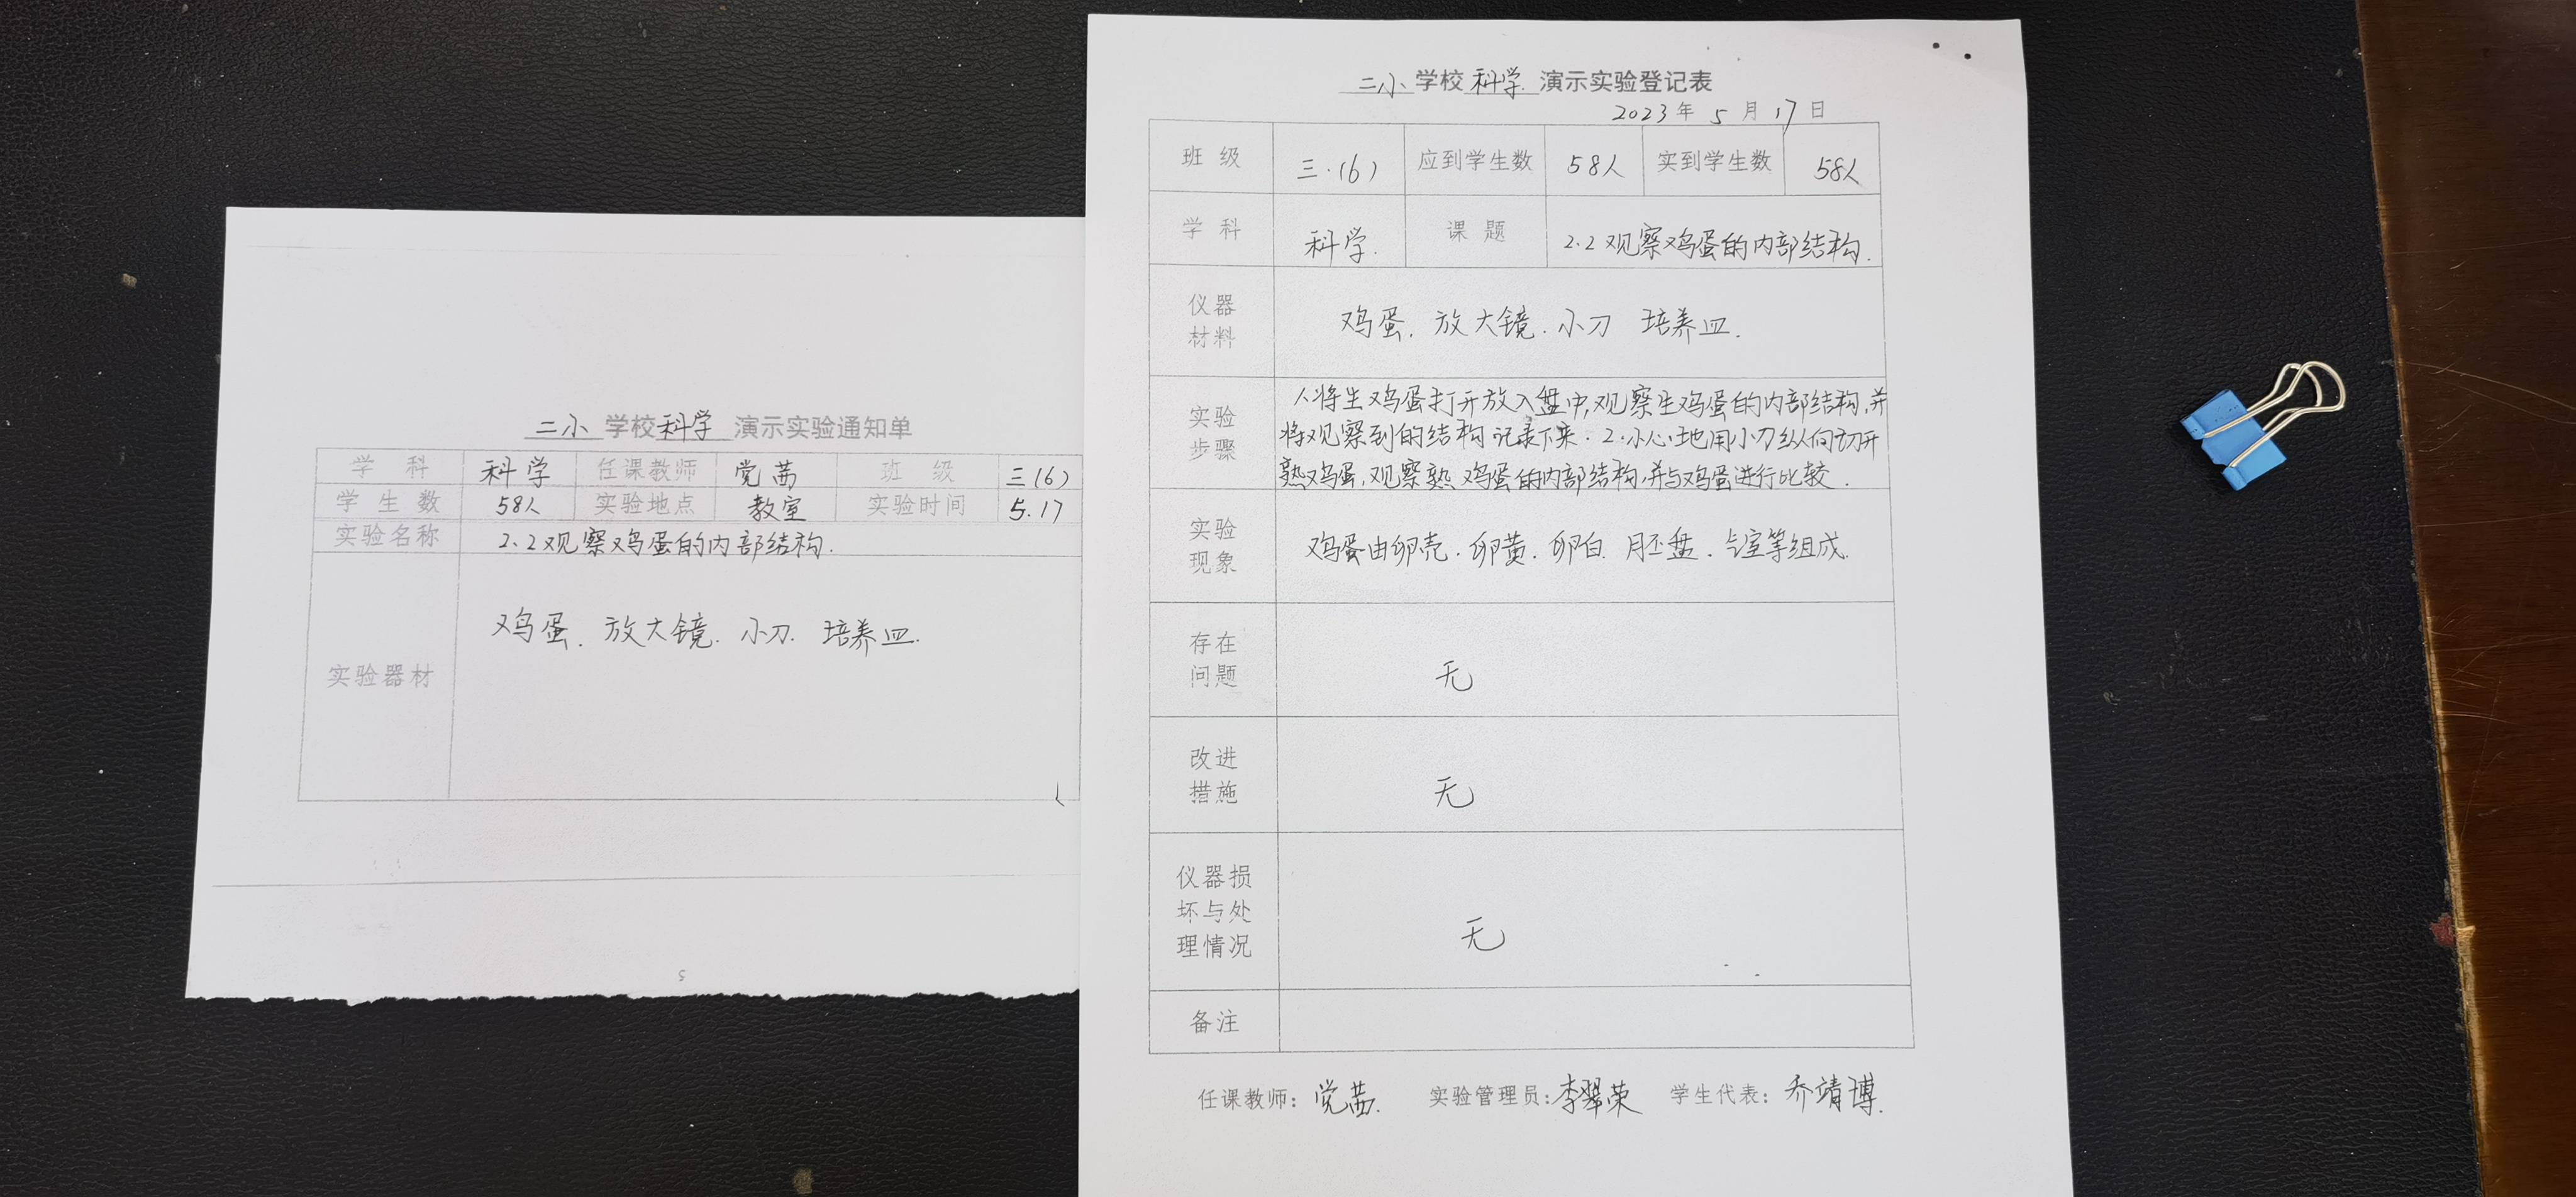 二小 学校 科学 演示实验通知单
学 科 科学 任课教师 党茜 班 级 三(6)
学 生 数 58人 实验地点 教室 实验时间 5.17
实验名称 2.2观察鸡蛋的内部结构.
实验器材 鸡蛋. 放大镜. 小刀. 培养皿.
5
二小 学校 科学 演示实验登记表
2023 年 5 月 17 日
班 级 三.(6) 应到学生数 58人 实到学生数 58人
学 科 科学. 课 题 2.2观察鸡蛋的内部结构.
仪器
材料
鸡蛋. 放大镜. 小刀 培养皿.
实验
步骤
1.将生鸡蛋打开放入盘中,观察生鸡蛋的内部结构,并
将观察到的结构记录下来. 2.小心地用小刀纵向切开
熟鸡蛋,观察熟鸡蛋的内部结构,并与鸡蛋进行比较.
实验
现象
鸡蛋由卵壳. 卵黄. 卵白. 胚盘. 气室等组成.
存在
问题
无
改进
措施
无
仪器损
坏与处
理情况
无
备注
任课教师: 党茜. 实验管理员:李翠荣 学生代表: 乔靖博.